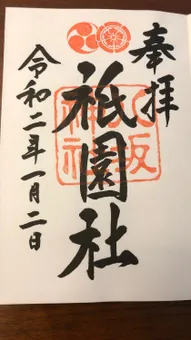 奉拝
八坂
神社
祇園社
令和二年一月二日